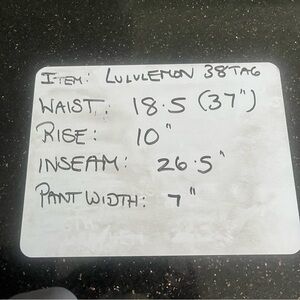 ITEM: LULULEMON 38 TAG
WAIST: 18.5 (37")
RISE: 10"
INSEAM: 26.5"
PANT WIDTH: 7"